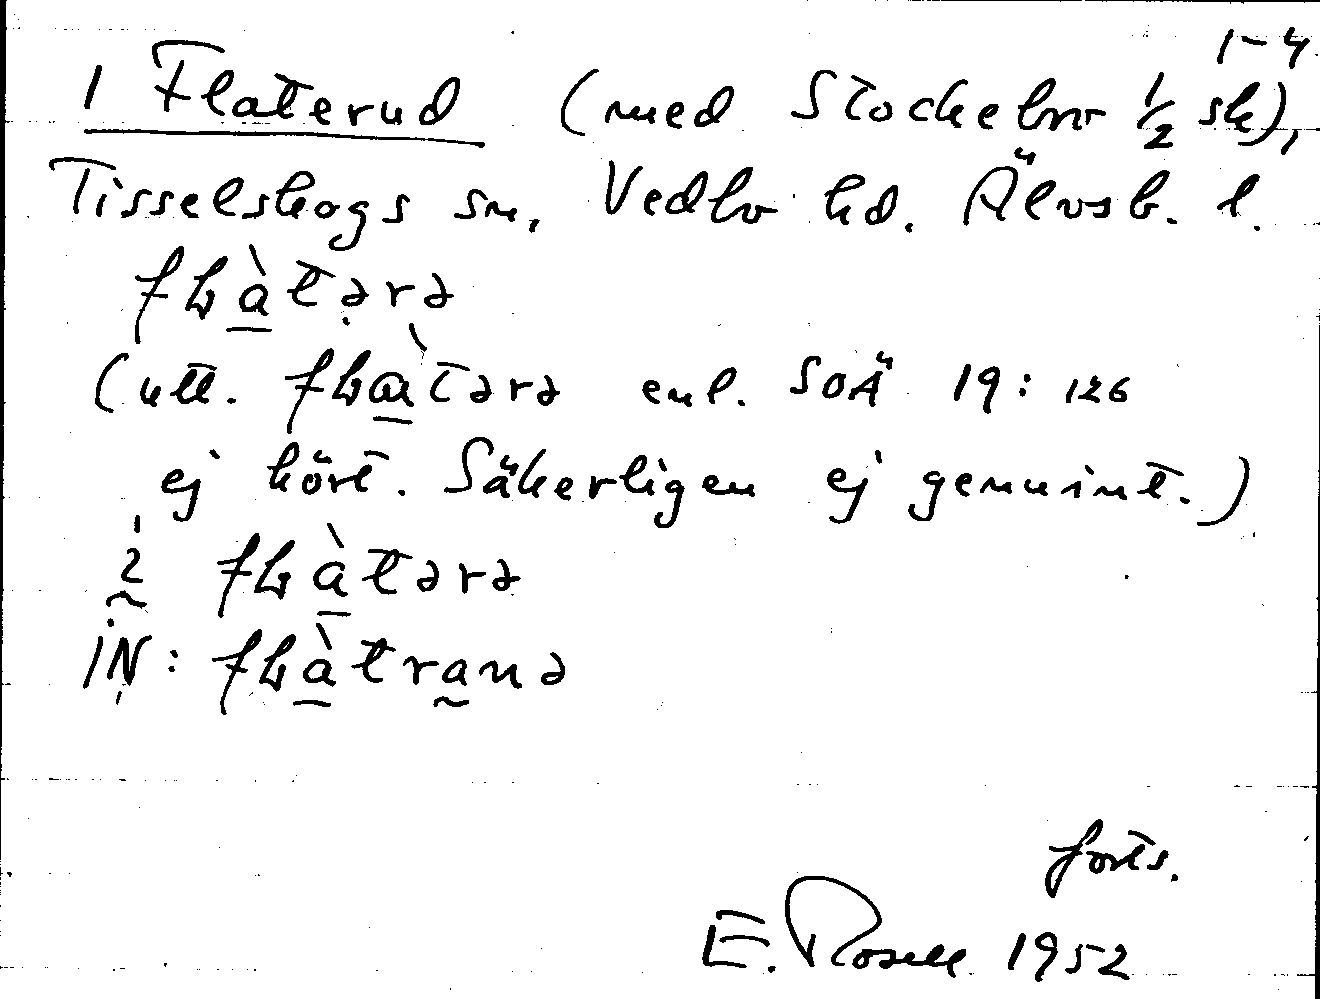 1-4
1 Flaterud (med Stockelov 1/2 sk),
Tisselskogs sn, Vedbo hd. Älvsb. l.
fɫàtərə
(utt. fɫàtərə enl. SOÄ 19: 126
ej hört. Säkerligen ej genuint.)
2 fɫàtərə
IN: fɫàtranə
forts.
E. Rosell 1952